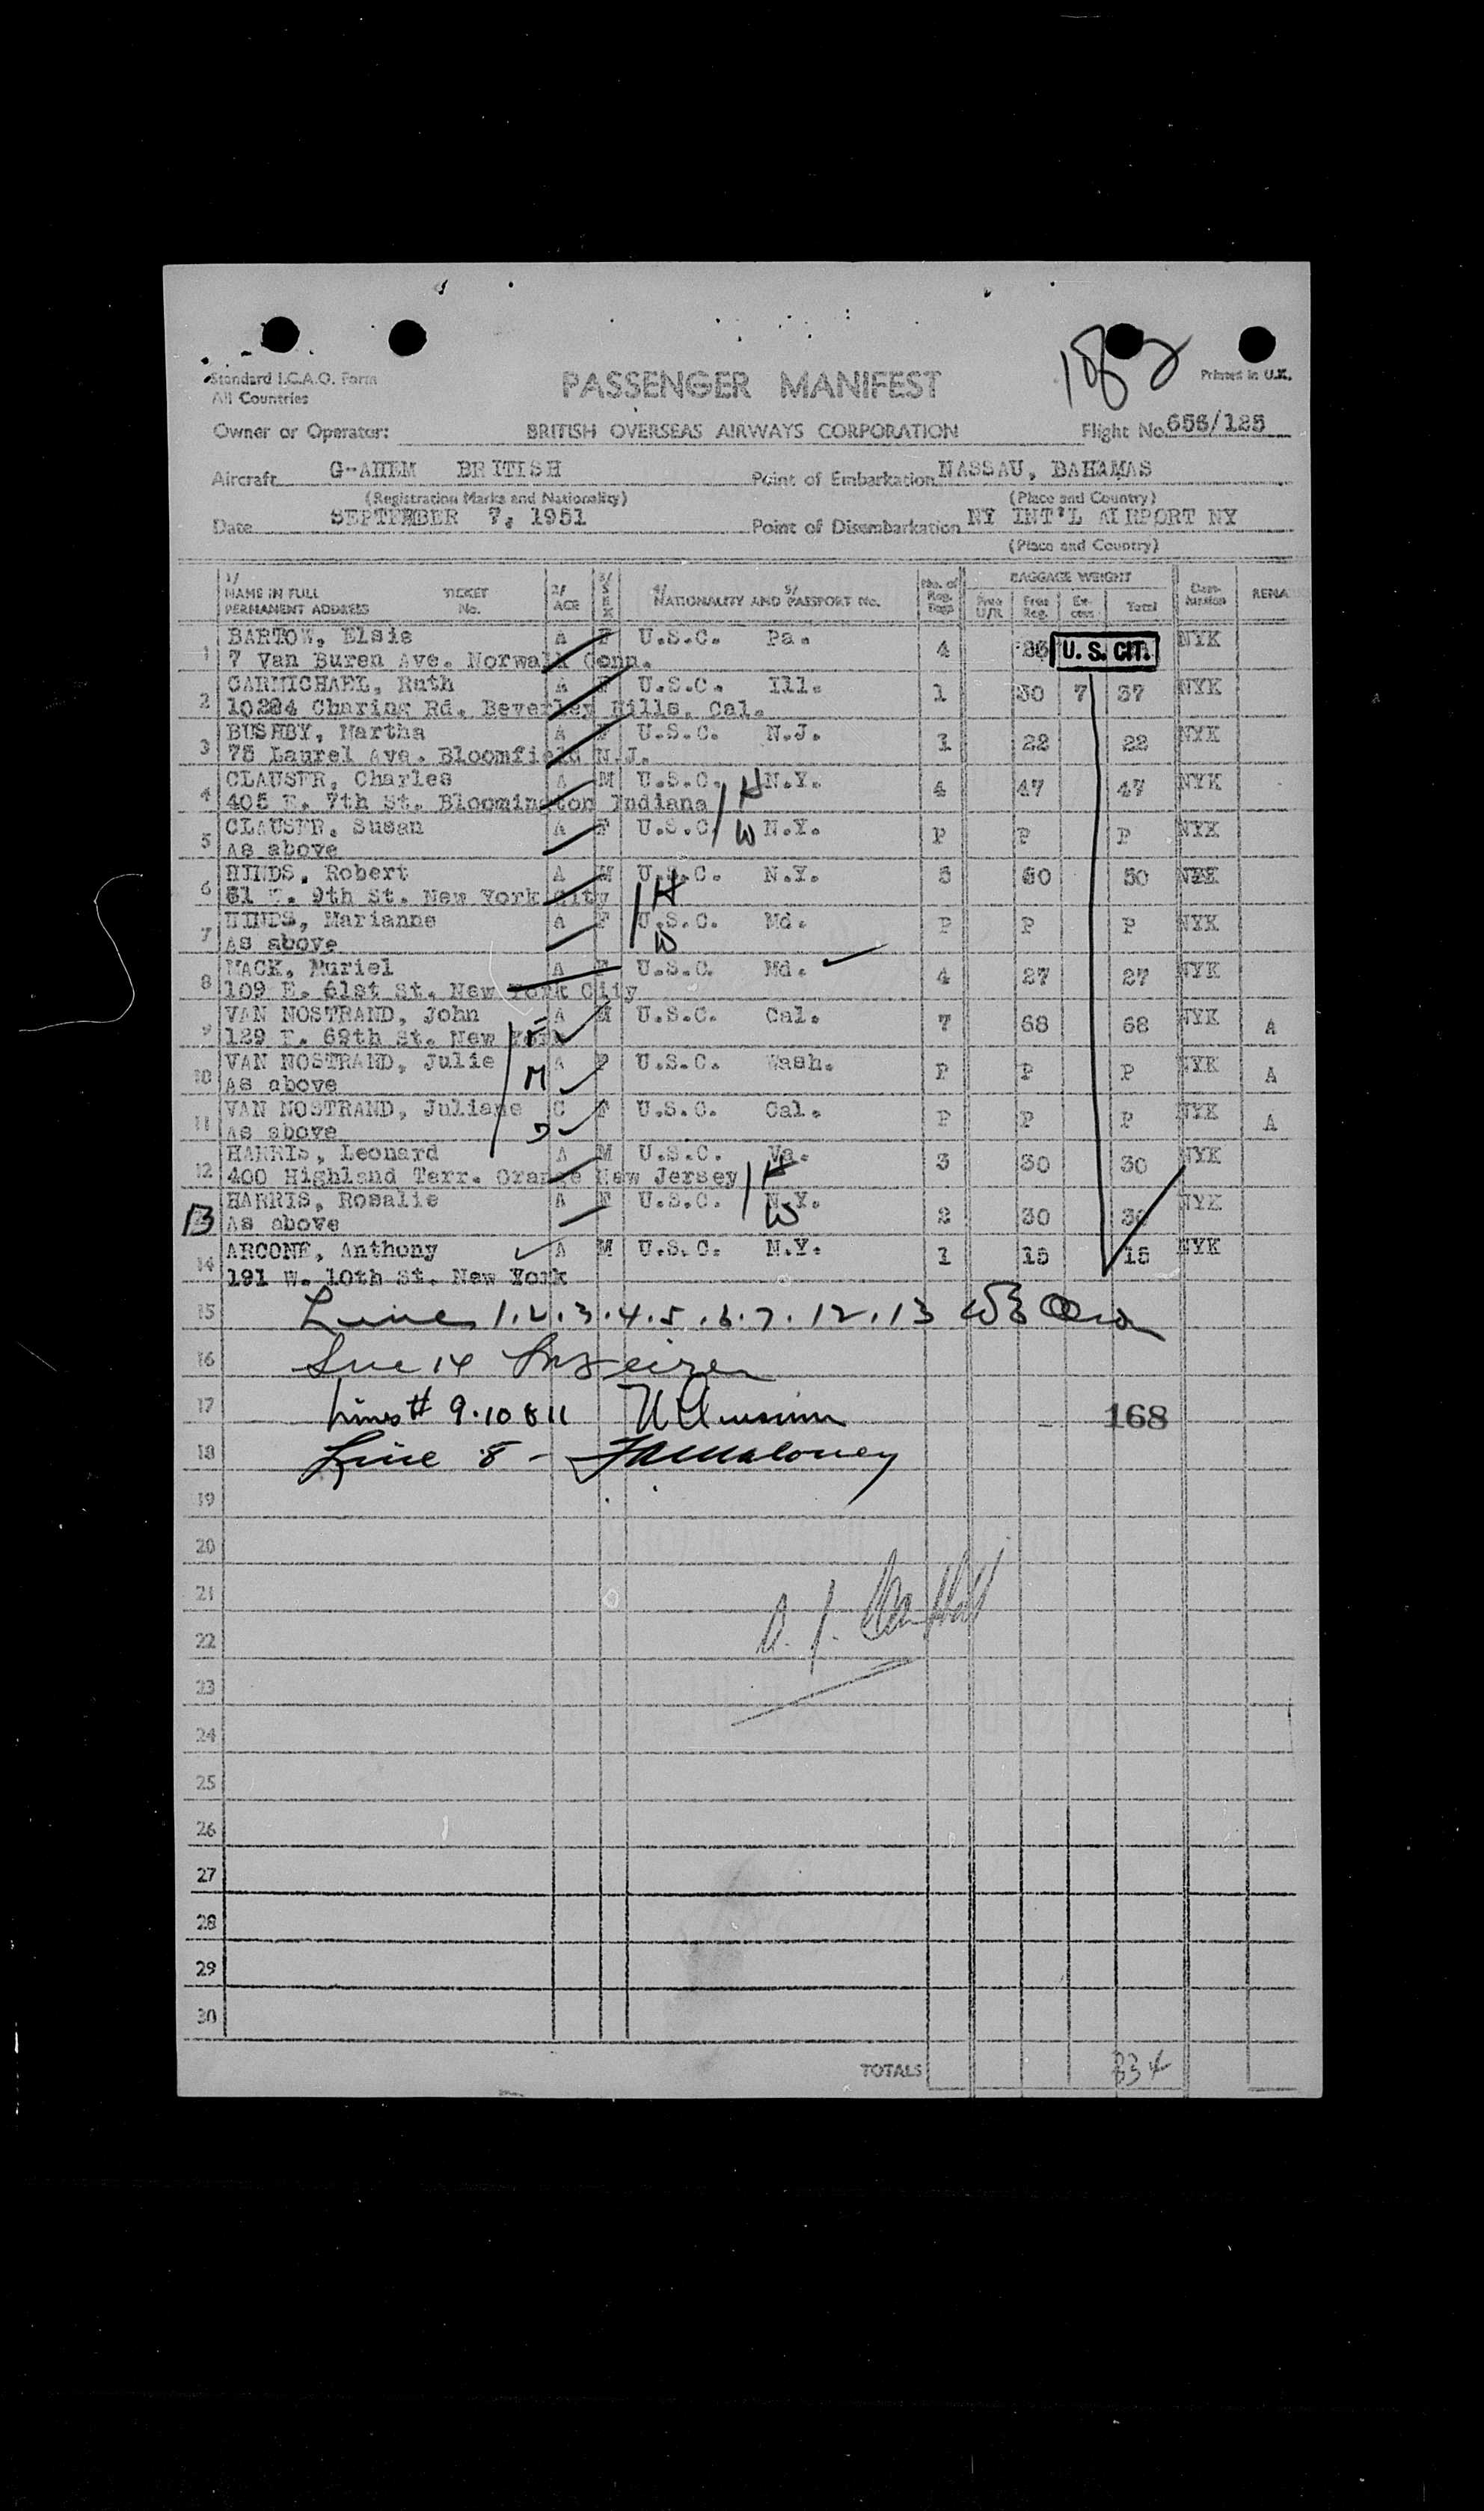 1882
Standard I.C.A.O. Form
All Countries
PASSENGER MANIFEST
Printed in U.K.
Owner or Operator: BRITISH OVERSEAS AIRWAYS CORPORATION Flight No. 656/125
Aircraft G-AHEM BRITISH Point of Embarkation NASSAU, BAHAMAS
(Registration Marks and Nationality) (Place and Country)
Date SEPTEMBER 7, 1951 Point of Disembarkation NY INT'L AIRPORT NY
(Place and Country)
1/ NAME IN FULL PERMANENT ADDRESS TICKET No. 2/ AGE 3/ SEX 4/ NATIONALITY AND 5/ PASSPORT No. No. of Reg. Bags BAGGAGE WEIGHT Free U/R Free Reg. Ex-cess Total Dest-ination REMA
1 BARTOW, Elsie A F U.S.C. Pa. 4 U. S. CIT. NYK
7 Van Buren Ave. Norwalk Conn.
2 CARMICHAEL, Ruth A F U.S.C. Ill. 1 30 7 37 NYK
10284 Charing Rd. Beverley Hills, Cal.
3 BUSHBY, Martha A F U.S.C. N.J. 1 22 22 NYK
75 Laurel Ave. Bloomfield N.J.
4 CLAUSER, Charles A M U.S.C. H N.Y. 4 47 47 NYK
405 E. 7th St. Bloomington Indiana
5 CLAUSER, Susan A F U.S.C. W N.Y. P P P NYK
As above
6 HINDS, Robert A M U.S.C. H N.Y. 5 50 50 NYK
61 E. 9th St. New York City
7 HINDS, Marianne A F U.S.C. W Md. P P P NYK
As above
8 MACK, Muriel A F U.S.C. Md. 4 27 27 NYK
109 E. 61st St. New York City
9 VAN NOSTRAND, John F A M U.S.C. Cal. 7 68 68 NYK A
129 E. 69th St. New York
10 VAN NOSTRAND, Julie M A F U.S.C. Wash. P P P NYK A
As above
11 VAN NOSTRAND, Juliane D C F U.S.C. Cal. P P P NYK A
As above
12 HARRIS, Leonard A M U.S.C. H Va. 3 30 30 NYK
400 Highland Terr. Orange New Jersey
13 HARRIS, Rosalie A F U.S.C. W N.Y. 2 30 30 NYK
As above
14 ARCONE, Anthony A M U.S.C. N.Y. 1 15 15 NYK
191 W. 10th St. New York
15 Lines 1.2.3.4.5.6.7.12.13
16 Line 14
17 Lines # 9.10 & 11 168
18 Line 8 - Maloney
19
20
21
22
23
24
25
26
27
28
29
30
TOTALS 334